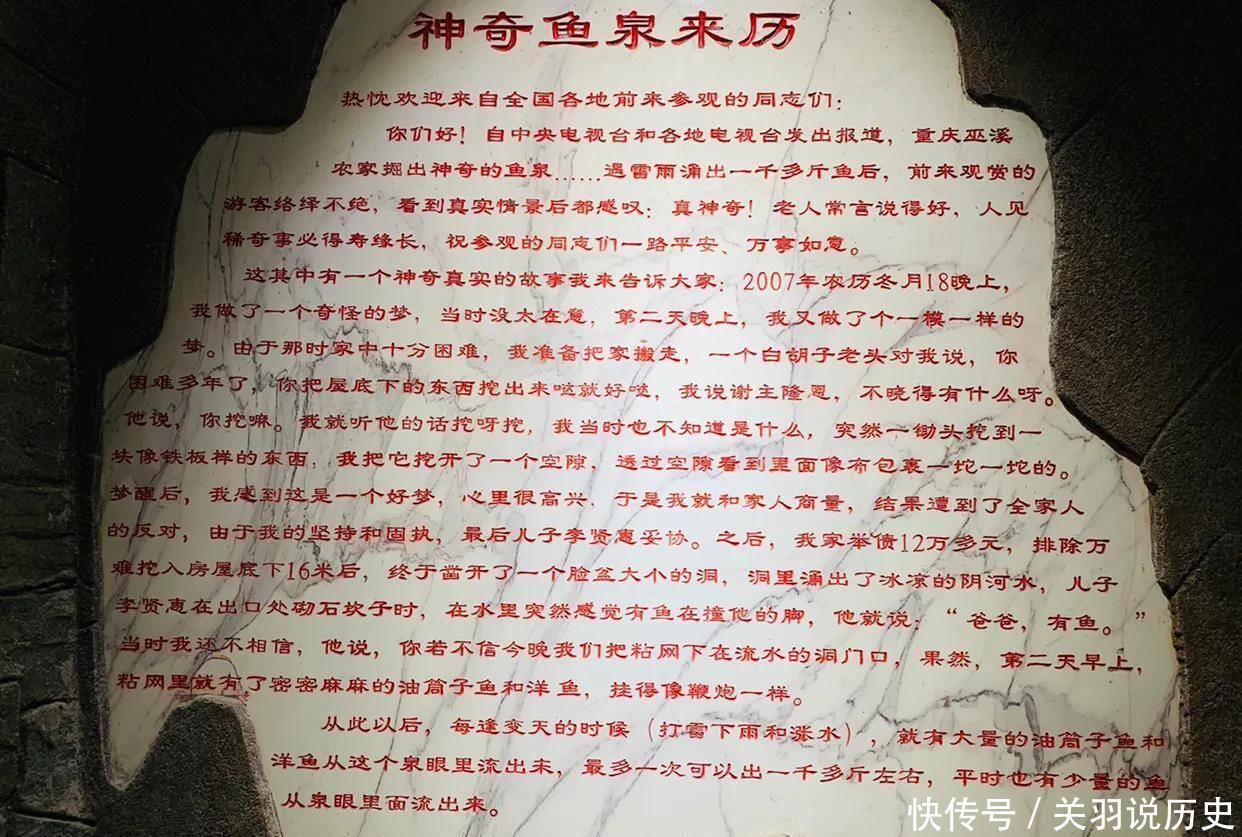 神奇鱼泉来历
热忱欢迎来自全国各地前来参观的同志们：
你们好！自中央电视台和各地电视台发出报道，重庆巫溪
农家掘出神奇的鱼泉……遇雷雨涌出一千多斤鱼后，前来观赏的
游客络绎不绝，看到真实情景后都感叹：真神奇！老人常言说得好，人见
稀奇事必得寿缘长，祝参观的同志们一路平安、万事如意。
这其中有一个神奇真实的故事我来告诉大家：2007年农历冬月18晚上，
我做了一个奇怪的梦，当时没太在意，第二天晚上，我又做了个一模一样的
梦。由于那时家中十分困难，我准备把家搬走，一个白胡子老头对我说，你
困难多年了，你把屋底下的东西挖出来哒就好哒，我说谢主隆恩，不晓得有什么呀。
他说，你挖嘛。我就听他的话挖呀挖，我当时也不知道是什么，突然一锄头挖到一
块像铁板样的东西，我把它挖开了一个空隙，透过空隙看到里面像布包裹一坨一坨的。
梦醒后，我感到这是一个好梦，心里很高兴，于是我就和家人商量，结果遭到了全家人
的反对，由于我的坚持和固执，最后儿子李贤惠妥协。之后，我家举债12万多元，排除万
难挖入房屋底下16米后，终于凿开了一个脸盆大小的洞，洞里涌出了冰凉的阴河水，儿子
李贤惠在出口处砌石坎子时，在水里突然感觉有鱼在撞他的脚，他就说：“爸爸，有鱼。”
当时我还不相信，他说，你若不信今晚我们把粘网下在流水的洞门口，果然，第二天早上，
粘网里就有了密密麻麻的油筒子鱼和洋鱼，挂得像鞭炮一样。
从此以后，每逢变天的时候（打雷下雨和涨水），就有大量的油筒子鱼和
洋鱼从这个泉眼里流出来，最多一次可以出一千多斤左右，平时也有少量的鱼
从泉眼里面流出来。
快传号／关羽说历史